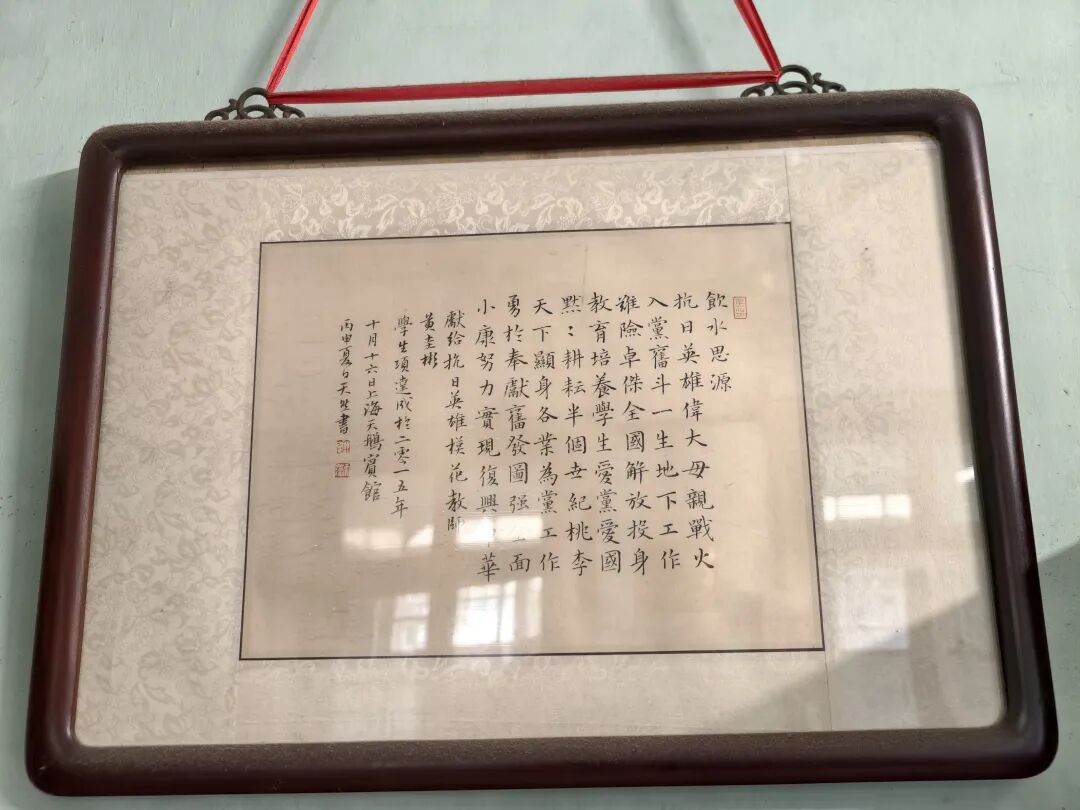 飲水思源
抗日英雄偉大母親戰火
入黨奮斗一生地下工作
雖險卓傑全國解放投身
教育培養學生愛黨愛國
默〻耕耘半個世紀桃李
天下顯身各業為黨工作
勇於奉獻奮發圖强 面
小康努力實現復興 華
獻給抗日英雄模范教師
黄圭彬
學生項達成於二零一五年
十月十六日上海天鵝賓館
丙申夏白天 書